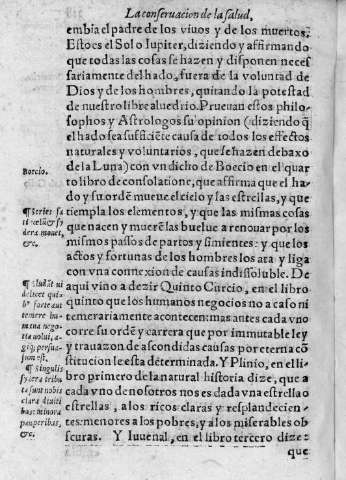 La conseruacion de la salud,
embia el padre de los viuos y de los muertos.
Esto es el Sol o Iupiter, diziendo y affirmando
que todas las cosas se hazen y disponen neces
sariamente del hado, fuera de la voluntad de
Dios y de los hombres, quitando la potestad
de nuestro libre aluedrio. Prueuan estos philo-
sophos y Astrologos su opinion (diziendo q̃
el hado sea sufficiẽte causa de todos los effectos
naturales y voluntarios, que se hazen debaxo
de la Luna) con vn dicho de Boecio en el quar
to libro de consolatione, que affirma que el ha-
do y su ordẽ mueue el cielo y las estrellas, y que
tiempla los elementos, y que las mismas cosas
que nacen y muerẽ las buelue a renouar por los
mismos passos de partos y simientes: y que los
actos y fortunas de los hombres los ata y liga
con vna connexion de causas indissoluble. De
aqui vino a dezir Quinto Curcio, en el libro
quinto que los humanos negocios no a caso ni
temerariamente acontecen: mas antes cada vno
corre su ordẽ y carrera que por immutable ley
y trauazon de ascondidas causas por eterna cõ
stitucion le esta determinada. Y Plinio, en el li-
bro primero de la natural historia dize, que a
cada vno de nosotros nos es dada vna estrella o
estrellas, a los ricos claras y resplandecien-
tes: menores a los pobres, y a los miserables ob-
scuras. Y Iuuenal, en el libro tercero dize:
que
Boecio.
¶ Series fa
ti cœlũ & sy
dera mouet,
&c.
¶
delicet qui-
temere hu-
mana nego-
tia volui, a-
gi, persua-
sion est.
¶ Singulis
sydera tribu
ta sunt nobis
clara diuiti
bus: minora
pauperibus,
&c.